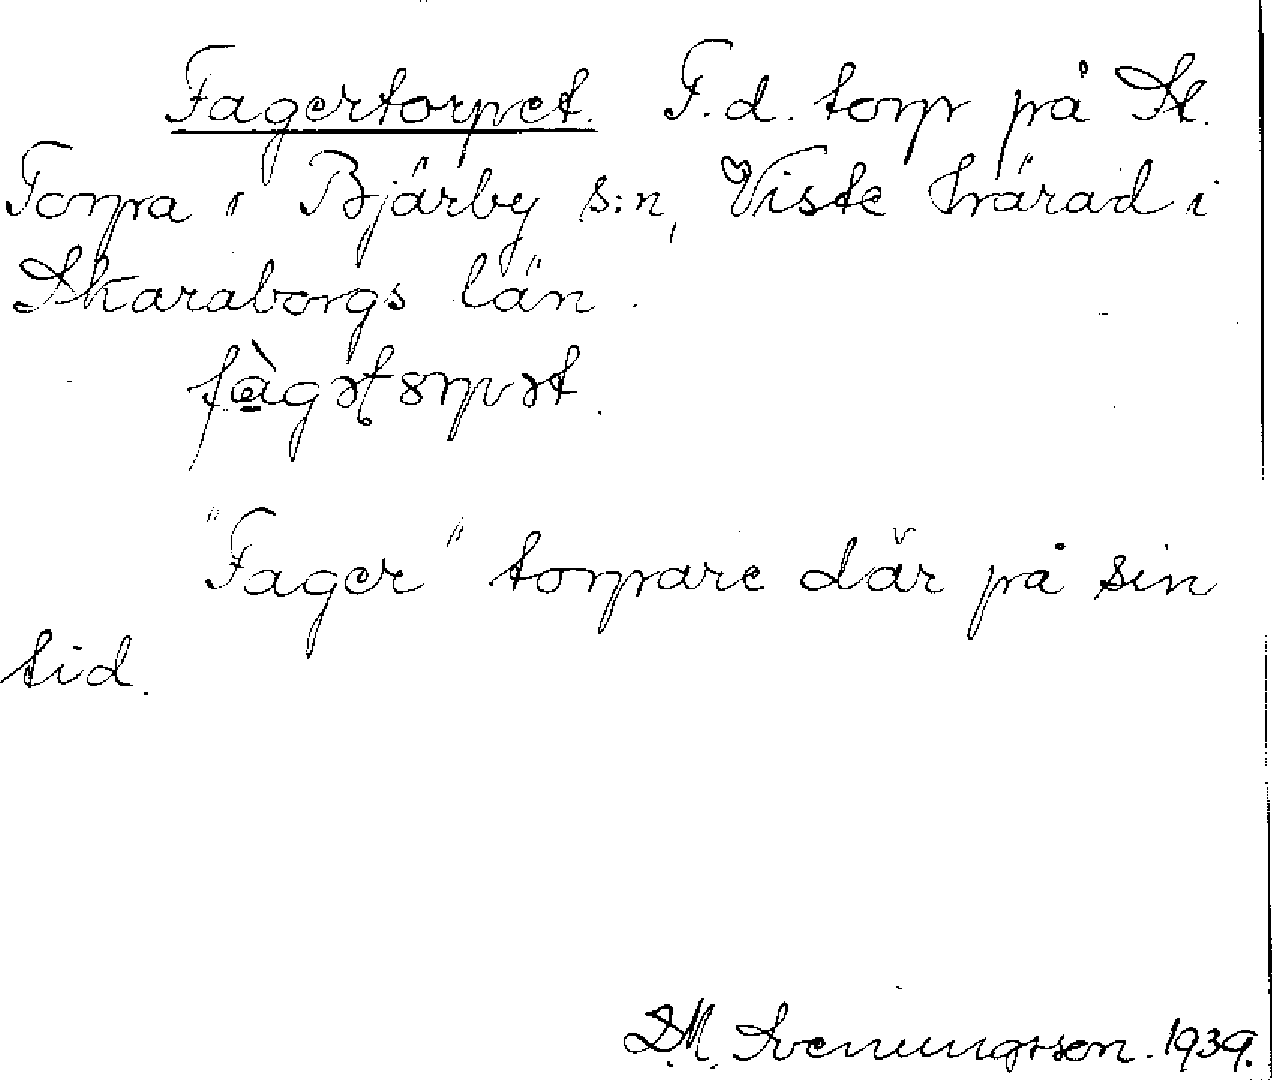 Fagertorpet. F.d. torp på St.
Torpa i Bjärby s:n, Viste härad i
Skaraborgs län.
fàgətorpət.
"Fager" torpare där på sin
tid.
D.M. Svenungsson. 1939.